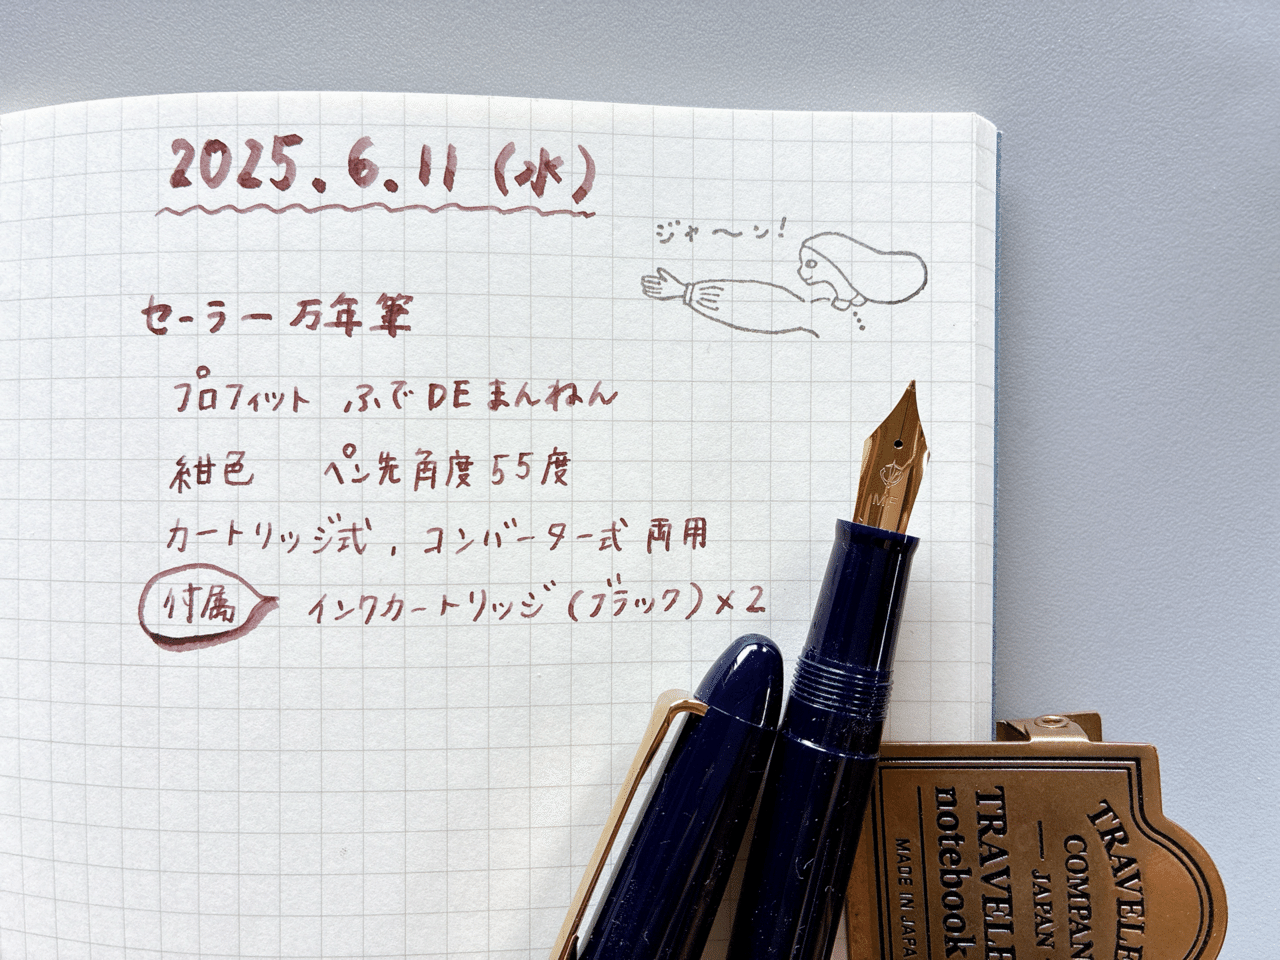 2025.6.11(水)
ジャ〜ン!
セーラー万年筆
プロフィット ふでDEまんねん
紺色 ペン先角度55度
カートリッジ式、コンバーター式両用
付属 インクカートリッジ(ブラック)×2
MF
TRAVELE
COMPAN
— JAPAN
TRAVELE
notebook
MADE IN JAPA